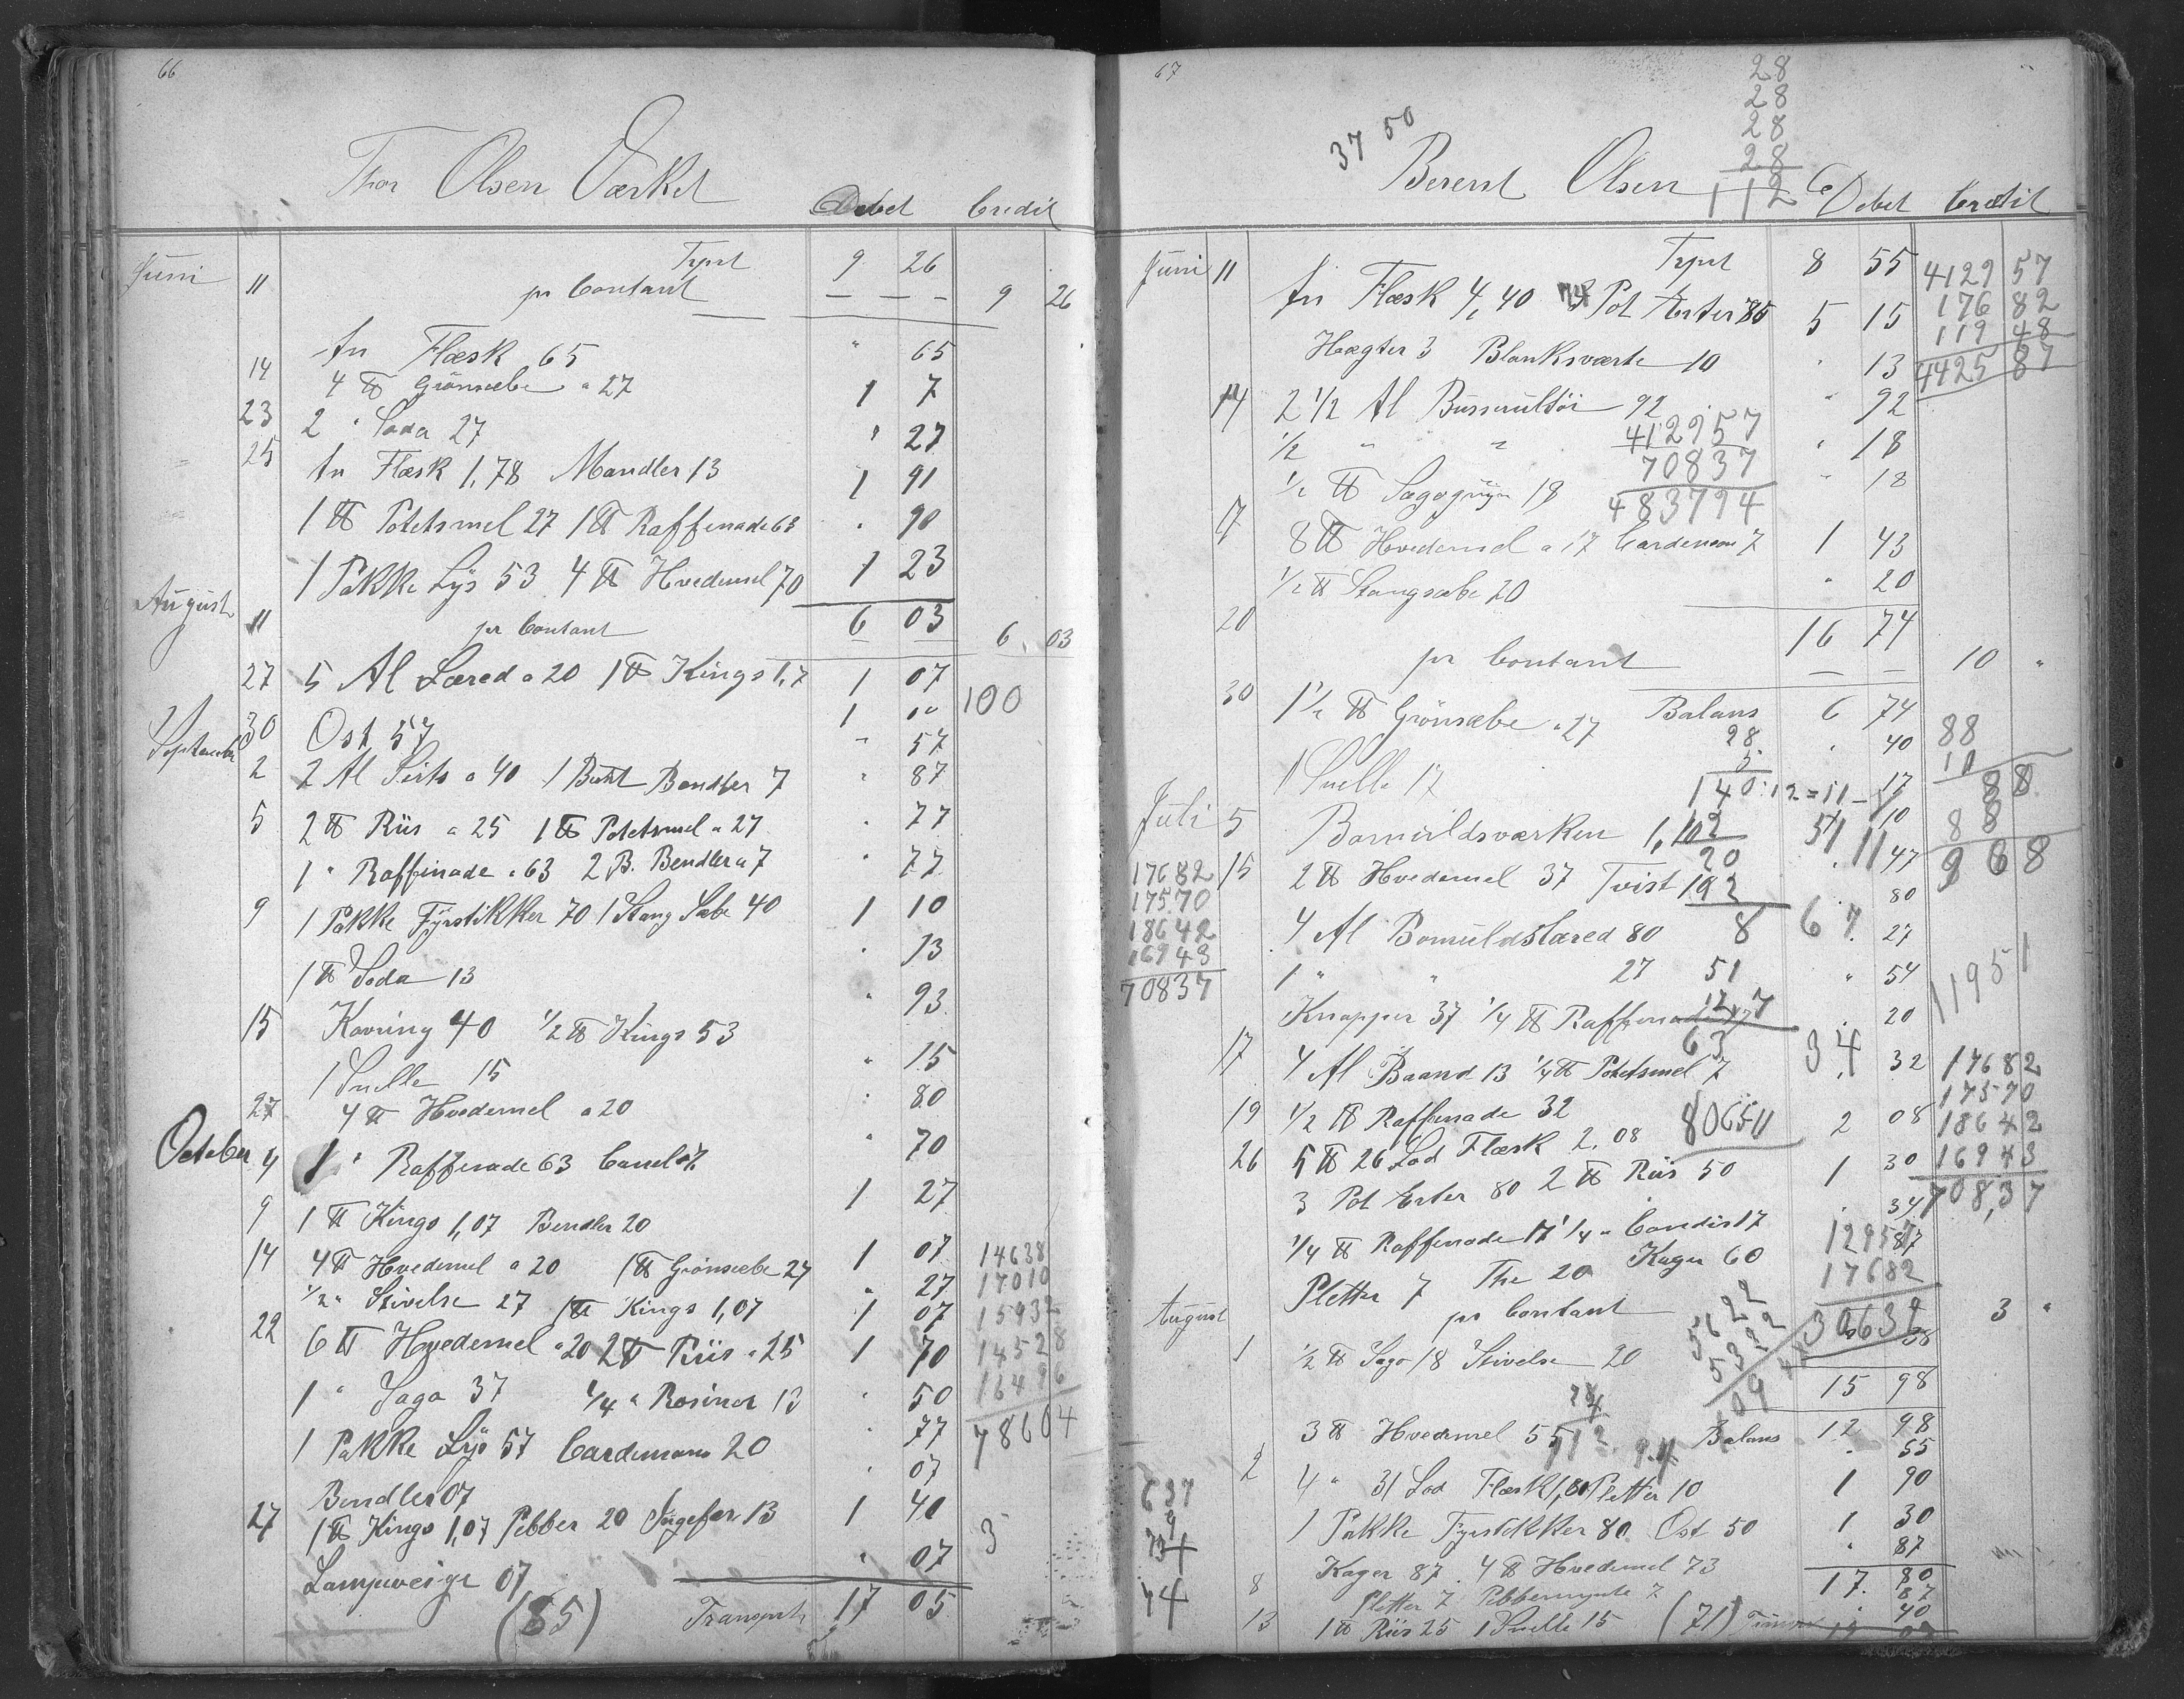 66
Thor Olsen Værket Debet Credit
Juni 11 Trpt 9 26
pr Contant — — — 9 26
14 An Flæsk 65 " 65
23 4 ℔ Grönsæbe a 27 1 7
25 2 " Soda 27 " 27
An Flæsk 1,78 Mandler 13 1 91
1 ℔ Potetsmel 27 1 ℔ Raffenade 63 " 90
1 Pakke Lys 53 4 ℔ Hvedemel 70 1 23
August 11 pr Contant 6 03 6 03
27 5 Al Læred a 20 1 ℔ Kings 1,7 1 07
1 00 100
30 Ost 57 " 57
September 2 2 Al Sirts a 40 1 Bundt Bendler 7 " 87
5 2 ℔ Riis a 25 1 ℔ Potetsmel a 27 " 77
1 " Raffinade a 63 2 B. Bendler a 7 " 77
9 1 Pakke Fyrstikker 70 1 Stang Sæbe 40 1 10
1 ℔ Soda 13 " 13
15 Kavring 40 1/2 ℔ Kings 53 " 93
1 Snelle 15 " 15
27 4 ℔ Hvedemel a 20 " 80
October 4 1 " Raffenade 63 Canel 7 " 70
9 1 ℔ Kings 1,07 Bendler 20 1 27
14 4 ℔ Hvedemel a 20 1 ℔ Grönsæbe 27 1 07 14638
1/2 " Stivelse 27 1 ℔ Kings 1,07 " 27 17010
1 07 15932
22 6 ℔ Hvedemel a 20 2 ℔ Riis a 25 1 70 14528
1 " Sago 37 1/4 " Rosiner 13 " 50 16496
1 Pakke Lys 57 Cardemome 20 " 77 78604
Bendler 07 " 07
27 1 ℔ Kings 1,07 Pebber 20 Ingefær 13 1 40
Lampeveige 07 " 07 3
(85) Transport 17 05
67
28
28
28
28
112
37 50
Berent Olsen Debet Credit
Juni 11 Trpt 8 55 4129 57
An Flæsk 4,40 Pot Erter 75 5 15 176 82
119 48
Hægter 3 Blanksværte 10 " 13 4425 87
14 2 1/2 Al Busserultöi 92 " 92
1/2 " " " 18
412957
70837
483794
1/2 ℔ Sagogryn 18 " 18
17 8 ℔ Hvedemel a 17 Cardemom 7 1 43
1/2 ℔ Stangsæbe 20 " 20
20 16 74
pr Contant — — 10 "
Balans 6 74
30 1 1/2 ℔ Grönsæbe a 27 " 40 88
28
5
140:12=11
1 Snelle 17 " 17
Juli 5 Bomuldsværken 1,10
15 2 ℔ Hvedemel 37 Tvist 10 " 47 968
17682
17570
18642
16943
70837
4 Al Bomuldslæred 80 " 80
1 " " 27 " 27
51
Knapper 37 1/4 ℔ Raffenade 17 " 54 11951
63
17 4 Al Baand 13 1/4 ℔ Potetsmel 7 " 20
19 1/2 ℔ Raffenade 32 " 32 17682
17570
26 5 ℔ 26 Lod Flæsk 2,08 2 08 18642
80651
3 Pot Erter 80 2 ℔ Riis 50 1 30 16943
1/4 ℔ Raffenade 17 1/4 " Candis 17 " 34 70837
Pletter 7 The 20 Kager 60 " 87
12957
17682
30639
pr Contant 3 "
August 1 1/2 ℔ Sago 18 Stivelse 20 " 38
15 98
Balans 12 98
3 ℔ Hvedemel 55 " 55
2 4 " 31 Lod Flæsk 1,80 Pletter 10 1 90
1 Pakke Fyrstikker 80 Ost 50 1 30
637
Kager 87 " 87
4 ℔ Hvedemel 73
8 Pletter 7 Pebbermynte 7 17 80
87
13 1 ℔ Riis 25 1 Snelle 15 " 40
(71)